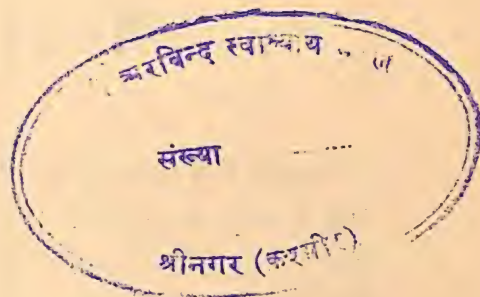 अरविन्द स्वाध्याय
संख्या ......
श्रीनगर (कश्मीर)